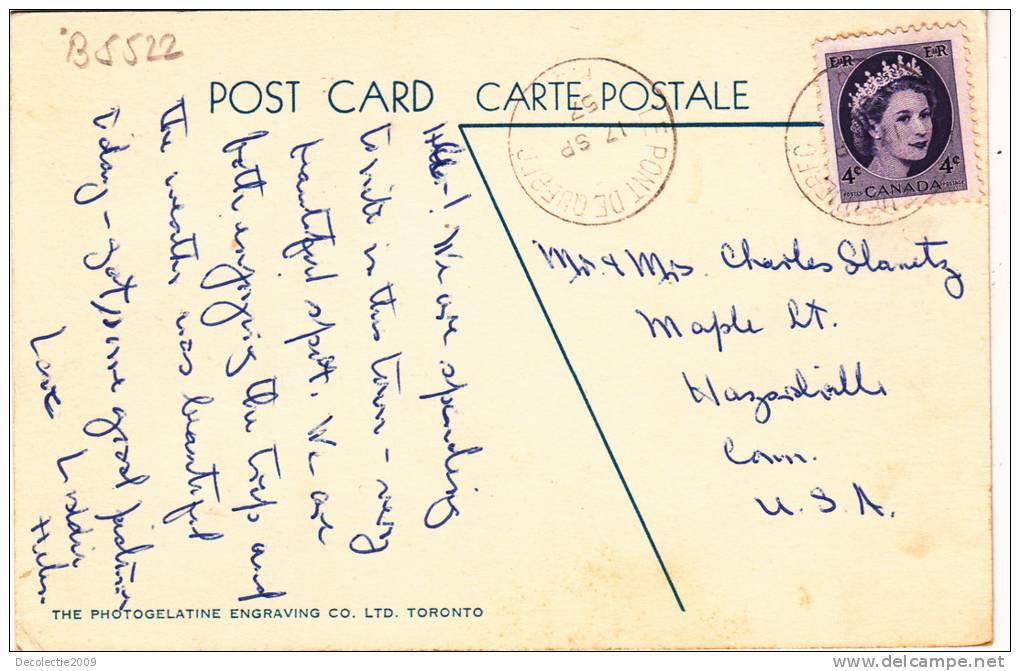 B5522
POST CARD CARTE POSTALE
LE PONT DE QUEBEC
17 SP
57
EIIR EIIR
4¢ 4¢
POSTES CANADA POSTAGE
Hello! We are spending
tonite in this town - very
beautiful spot. We are
both enjoying the trip and
the weather was beautiful
today - got some good pictures
Love
Helen
Mr & Mrs. Charles Slanetz
Maple St.
Hazardville
Conn.
U.S.A.
THE PHOTOGELATINE ENGRAVING CO. LTD. TORONTO
Decolectie2009
http://www.delcampe.net